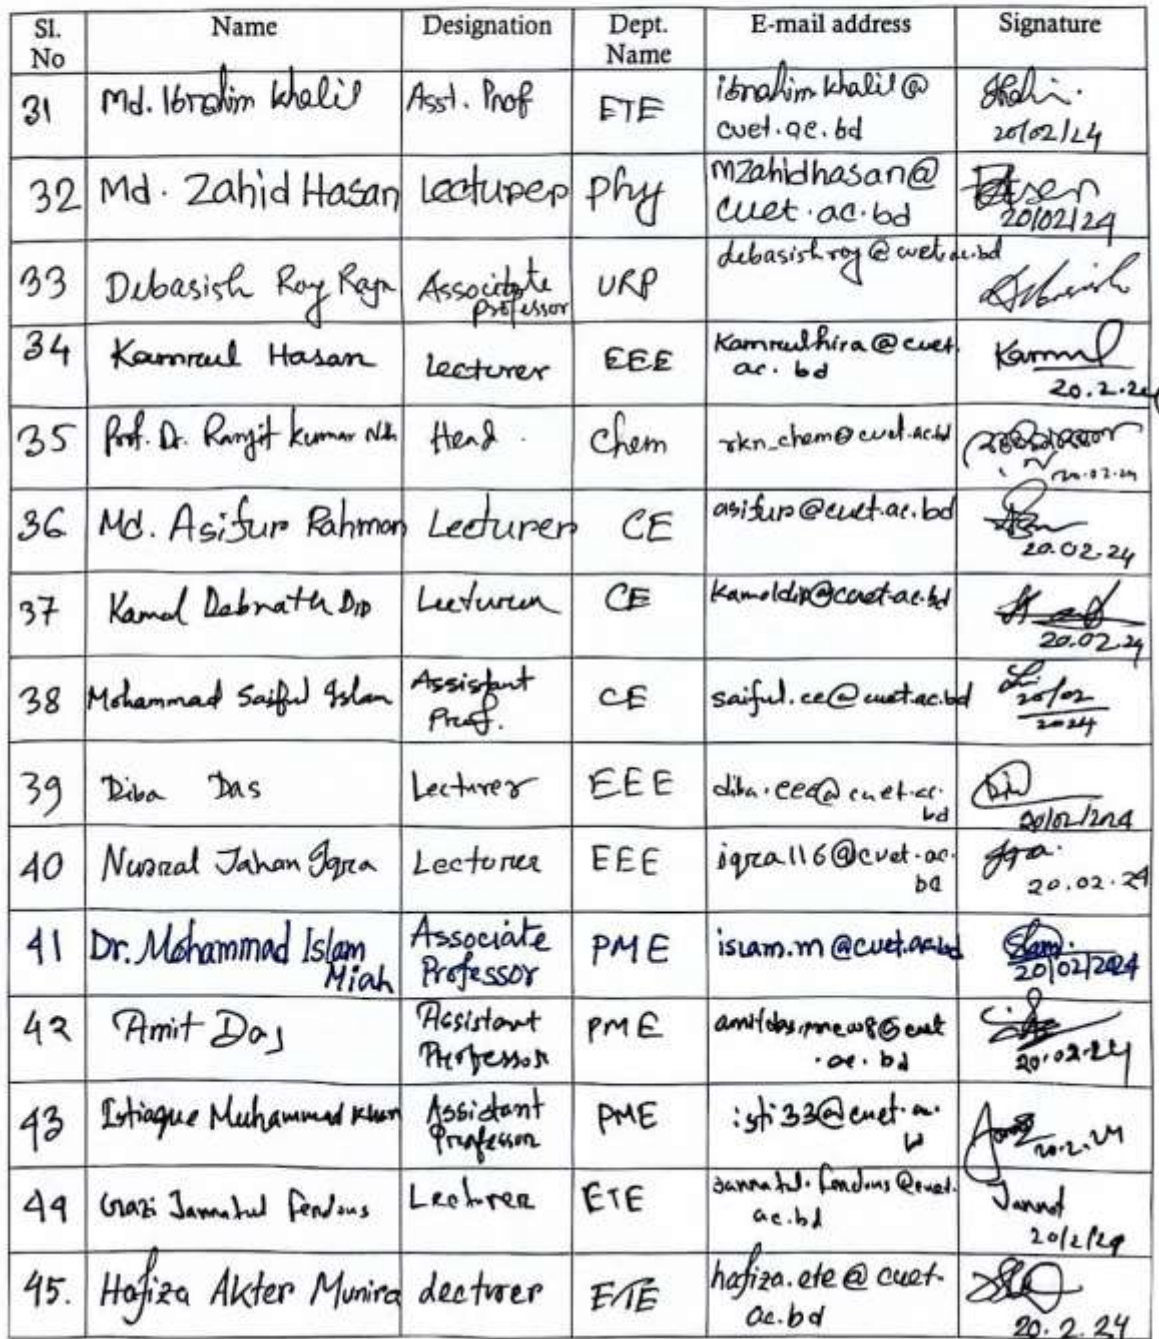 Sl. No Name Designation Dept. Name E-mail address Signature
31 Md. Ibrahim Khalil Asst. Prof ETE ibrahim.khalil@cuet.ac.bd 20/02/24
32 Md. Zahid Hasan Lecturer Phy mzahidhasan@cuet.ac.bd 20/02/24
33 Debasish Roy Raja Associate Professor URP debasishroy@cuet.ac.bd
34 Kamrul Hasan Lecturer EEE kamrulhira@cuet.ac.bd Kamrul 20.2.24
35 Prof. Dr. Ranjit Kumar Nath Head Chem rkn_chem@cuet.ac.bd 20.02.24
36 Md. Asifur Rahman Lecturer CE asifur@cuet.ac.bd 20.02.24
37 Kamol Debnath Dip Lecturer CE kamoldip@cuet.ac.bd 20.02.24
38 Mohammad Saiful Islam Assistant Prof. CE saiful.ce@cuet.ac.bd 20/02 2024
39 Diba Das Lecturer EEE diba.eee@cuet.ac.bd 20/02/2024
40 Nusrat Jahan Iqra Lecturer EEE iqra116@cuet.ac.bd Iqra. 20.02.24
41 Dr. Mohammad Islam Miah Associate Professor PME islam.m@cuet.ac.bd Islam. 20/02/2024
42 Amit Das Assistant Professor PME 20.02.24
43 Istiaque Muhammad Khan Assistant Professor PME isti33@cuet.ac.bd 20.2.24
44 Gazi Jannatul Ferdous Lecturer ETE jannatul.ferdous@cuet.ac.bd Jannat 20/2/24
45. Hafiza Akter Munira Lecturer ETE hafiza.ete@cuet.ac.bd 20.2.24